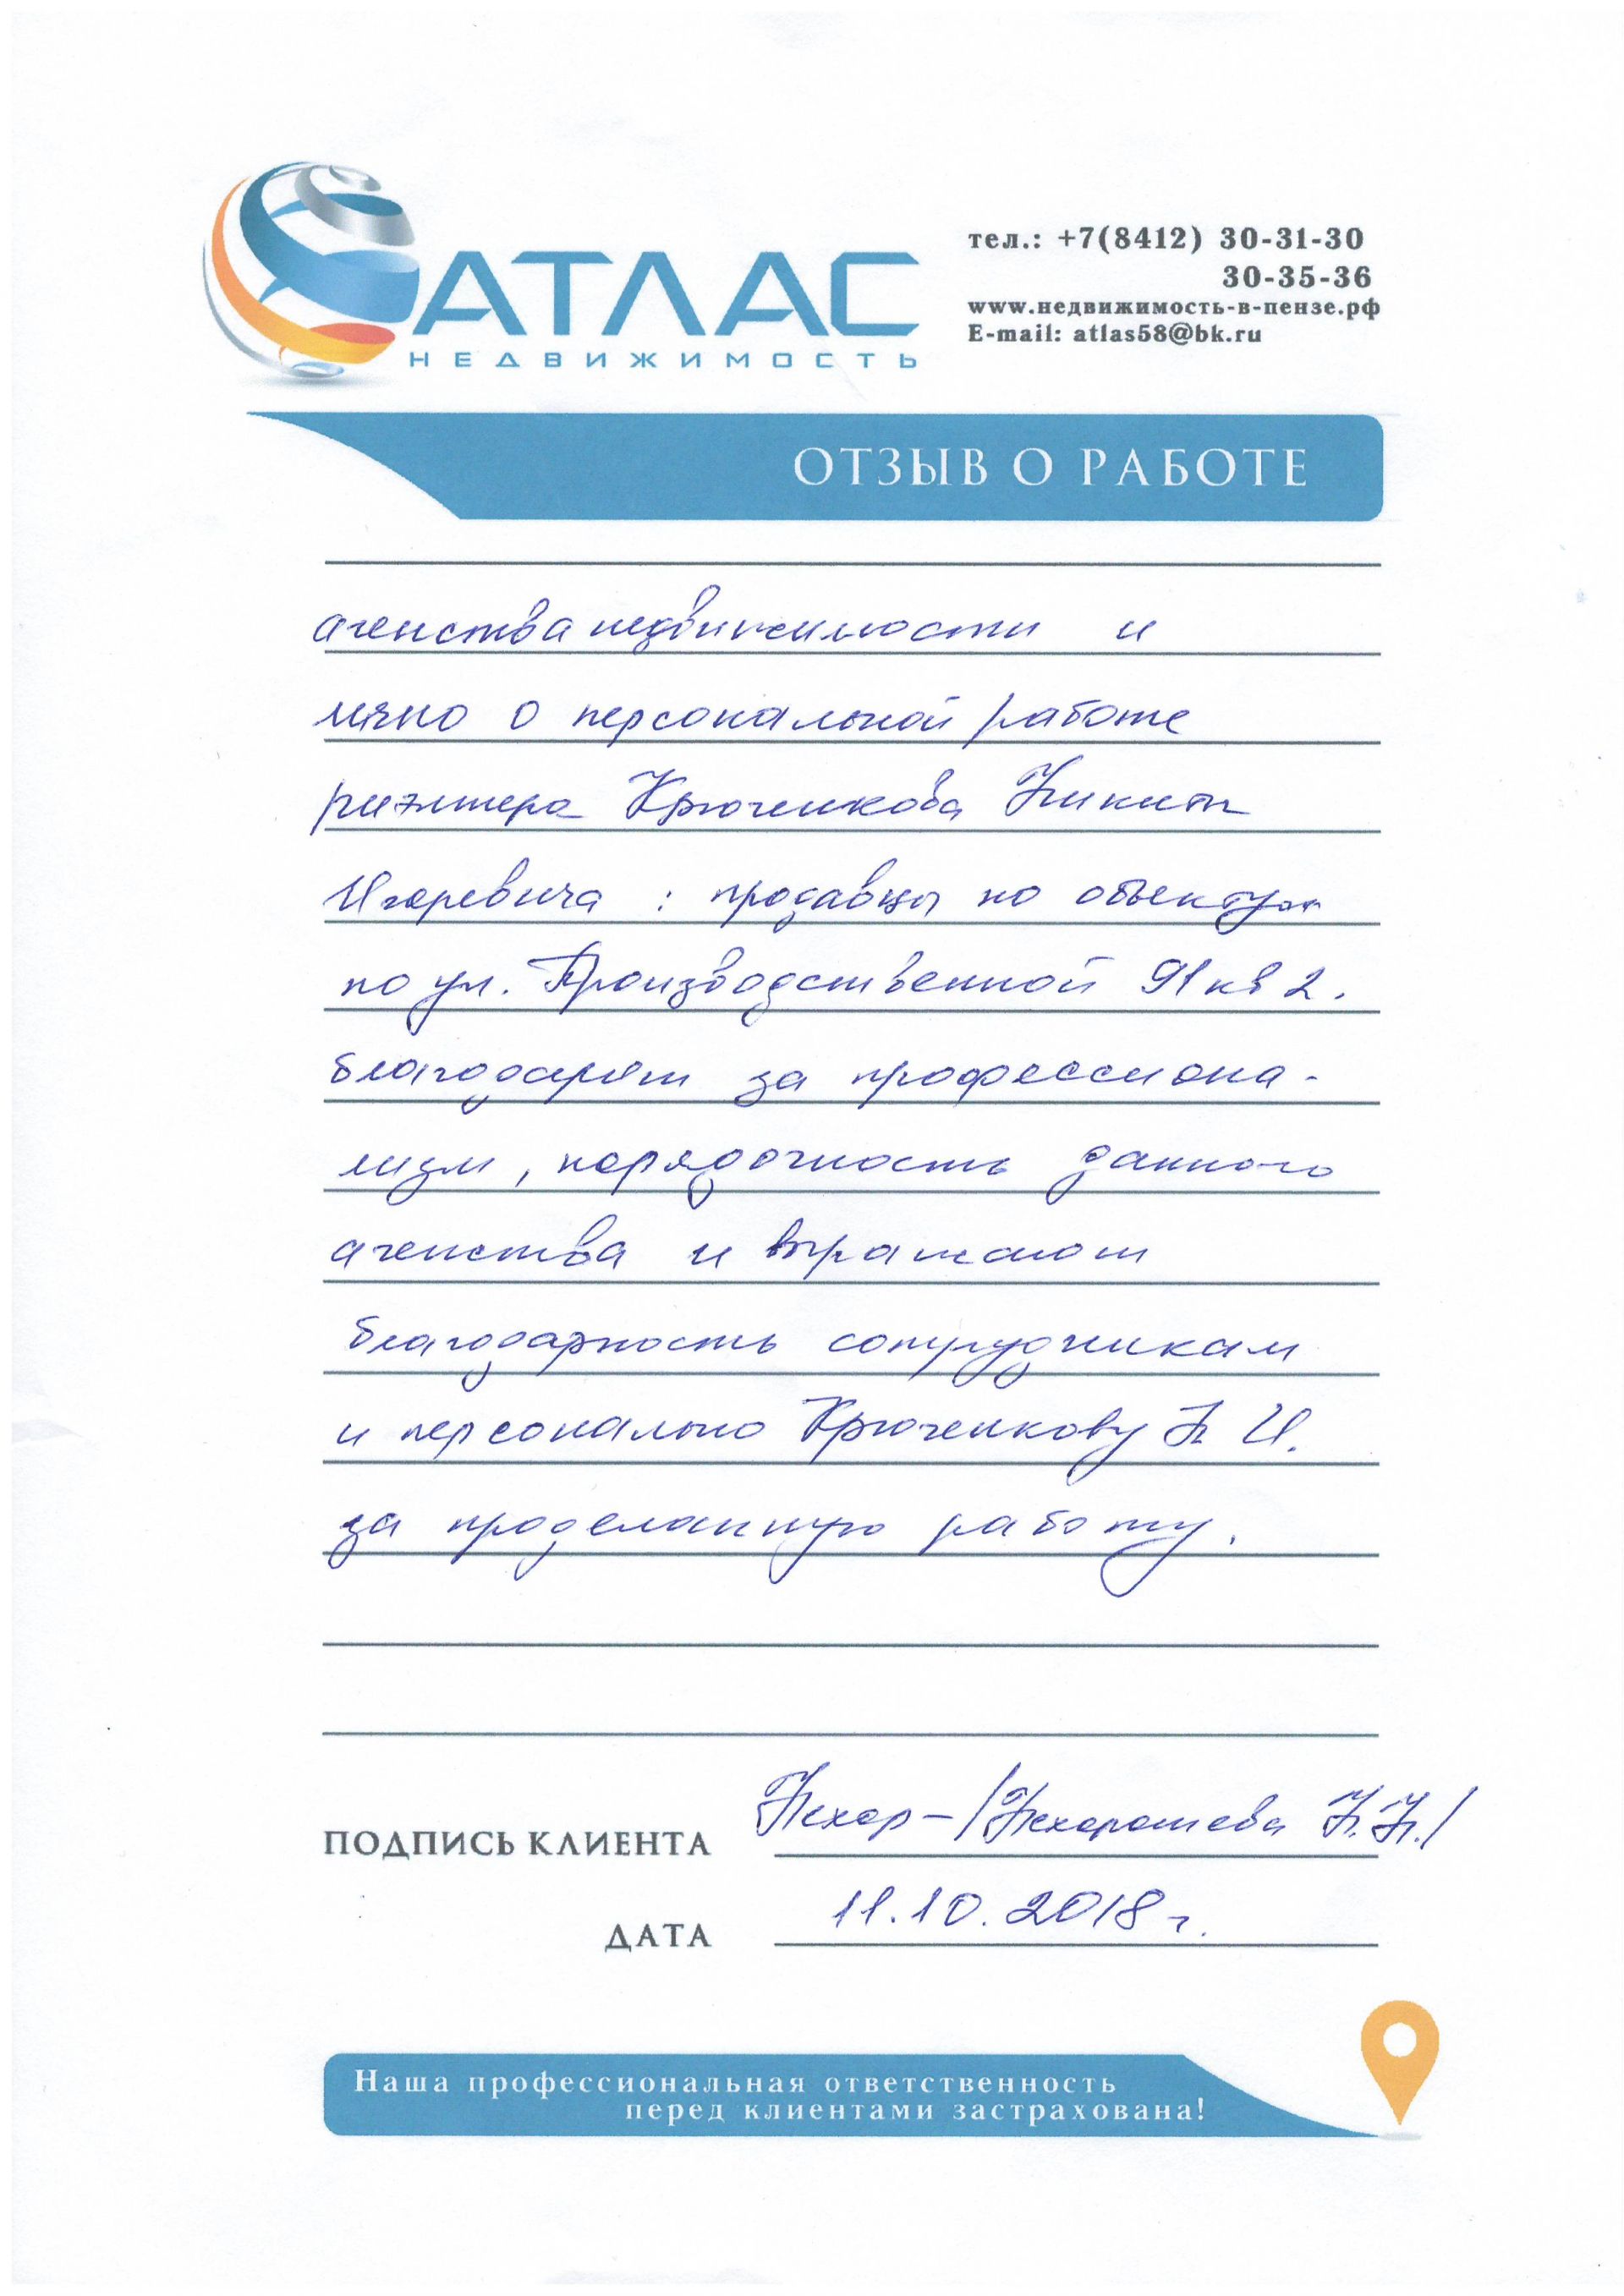 АТЛАС
НЕДВИЖИМОСТЬ
тел.: +7(8412) 30-31-30
30-35-36
www.недвижимость-в-пензе.рф
E-mail: atlas58@bk.ru
ОТЗЫВ О РАБОТЕ
агенства недвижимости и
лично о персональной работе
риэлтера Крюченкова Никиты
Игоревича : продавцы по объекту
по ул. Производственной 91 кв 2.
благодарят за профессиона-
лизм, порядочность данного
агенства и выражают
благодарность сотрудникам
и персонально Крюченкову Н И.
за проделанную работу.
ПОДПИСЬ КЛИЕНТА Нехор-/Нехорошева Н.Н./
ДАТА 11.10.2018 г.
Наша профессиональная ответственность
перед клиентами застрахована!